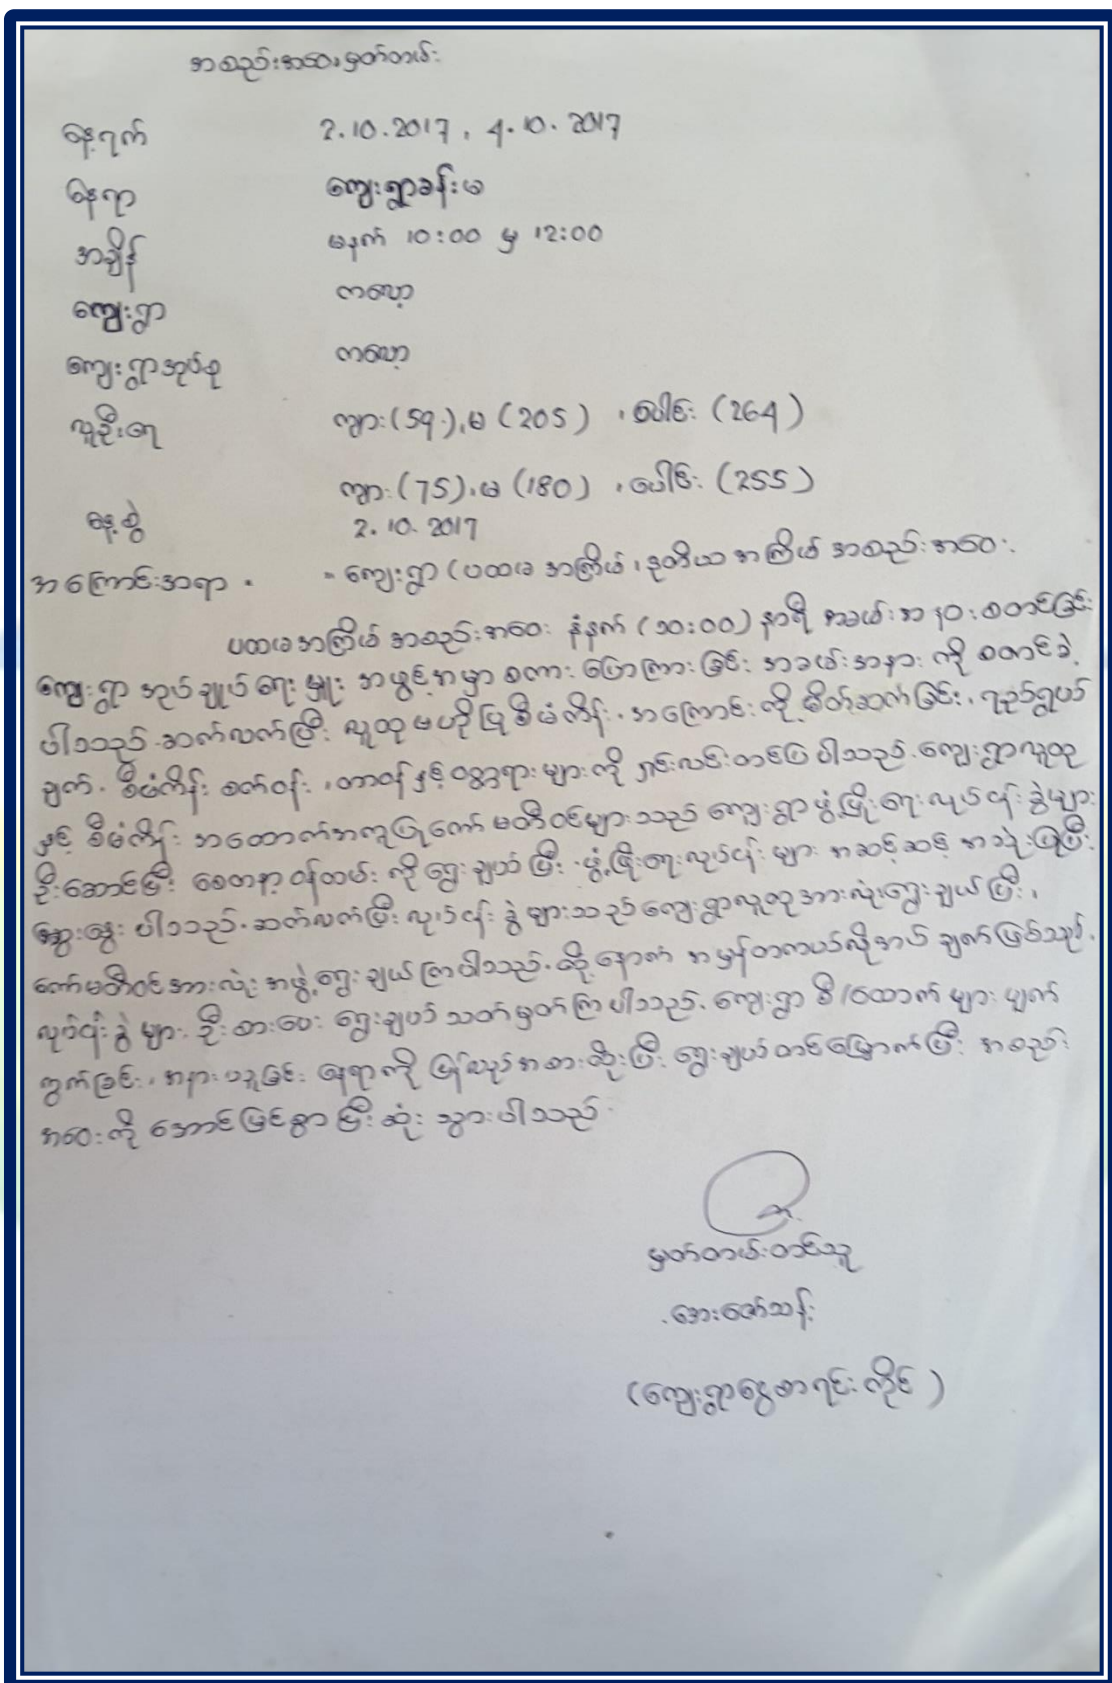 အစည်းအဝေးမှတ်တမ်း
နေ့ရက် 2.10.2017, 4.10.2017
နေရာ ကျေးရွာခန်းမ
အချိန် မနက် 10:00 မှ 12:00
ကျေးရွာ ကလော့
ကျေးရွာအုပ်စု ကလော့
လူဦးရေ ကျား(59)၊မ (205) ၊ ပေါင်း (264)
ကျား(75)၊မ (180) ၊ ပေါင်း (255)
နေ့စွဲ 2.10.2017
အကြောင်းအရာ - = ကျေးရွာ (ပထမအကြိမ်၊ ဒုတိယအကြိမ် အစည်းအဝေး
ပထမအကြိမ် အစည်းအဝေး နံနက် (၁၀:၀၀) နာရီ အခမ်းအနားစတင်ခြင်း
ကျေးရွာအုပ်ချုပ်ရေးမှူး အဖွင့်အမှာစကား ပြောကြားခြင်း အခမ်းအနားကို စတင်ခဲ့
ပါသည်. ဆက်လက်ပြီး လူထုဗဟိုပြုစီမံကိန်း. အကြောင်းကို မိတ်ဆက်ခြင်း, ရည်ရွယ်
ချက်. စီမံကိန်း စက်ဝန်း, တာဝန်နှင့်ဝတ္တရားများကို ရှင်းလင်းတင်ပြပါသည်. ကျေးရွာလူထု
နှင့် စီမံကိန်း အထောက်အကူပြုကော်မတီဝင်များသည် ကျေးရွာဖွံ့ဖြိုးရေးလုပ်ငန်းခွဲများ
ဦးဆောင်ပြီး စေတနာ့ဝန်ထမ်းကို ရွေးချယ်ပြီး. ဖွံ့ဖြိုးရေးလုပ်ငန်းများ အဆင့်ဆင့် အသုံးပြုပြီး
ဆွေးနွေးပါသည်. ဆက်လက်ပြီး လုပ်ငန်းခွဲများသည် ကျေးရွာလူထုအားလုံးရွေးချယ်ပြီး,
ကော်မတီဝင်အားလုံး အဖွဲ့ရွေးချယ်ကြပါသည်. ထို့နောက် အမှန်တကယ်လိုအပ်ချက်ဖြစ်သည့်.
လုပ်ငန်းခွဲများ. ဦးစားပေး ရွေးချယ်သတ်မှတ်ကြပါသည်. ကျေးရွာ စီ/ထောက်များ ပျက်
ကွက်ခြင်း, အနားယူခြင်း နေရာကို ပြန်လည်အစားထိုးပြီး ရွေးချယ်တင်မြှောက်ပြီး အစည်း
အဝေးကို အောင်မြင်စွာ ပြီးဆုံးသွားပါသည်.
မှတ်တမ်းတင်သူ
အေးဇော်သန်း
(ကျေးရွာငွေစာရင်းကိုင်)